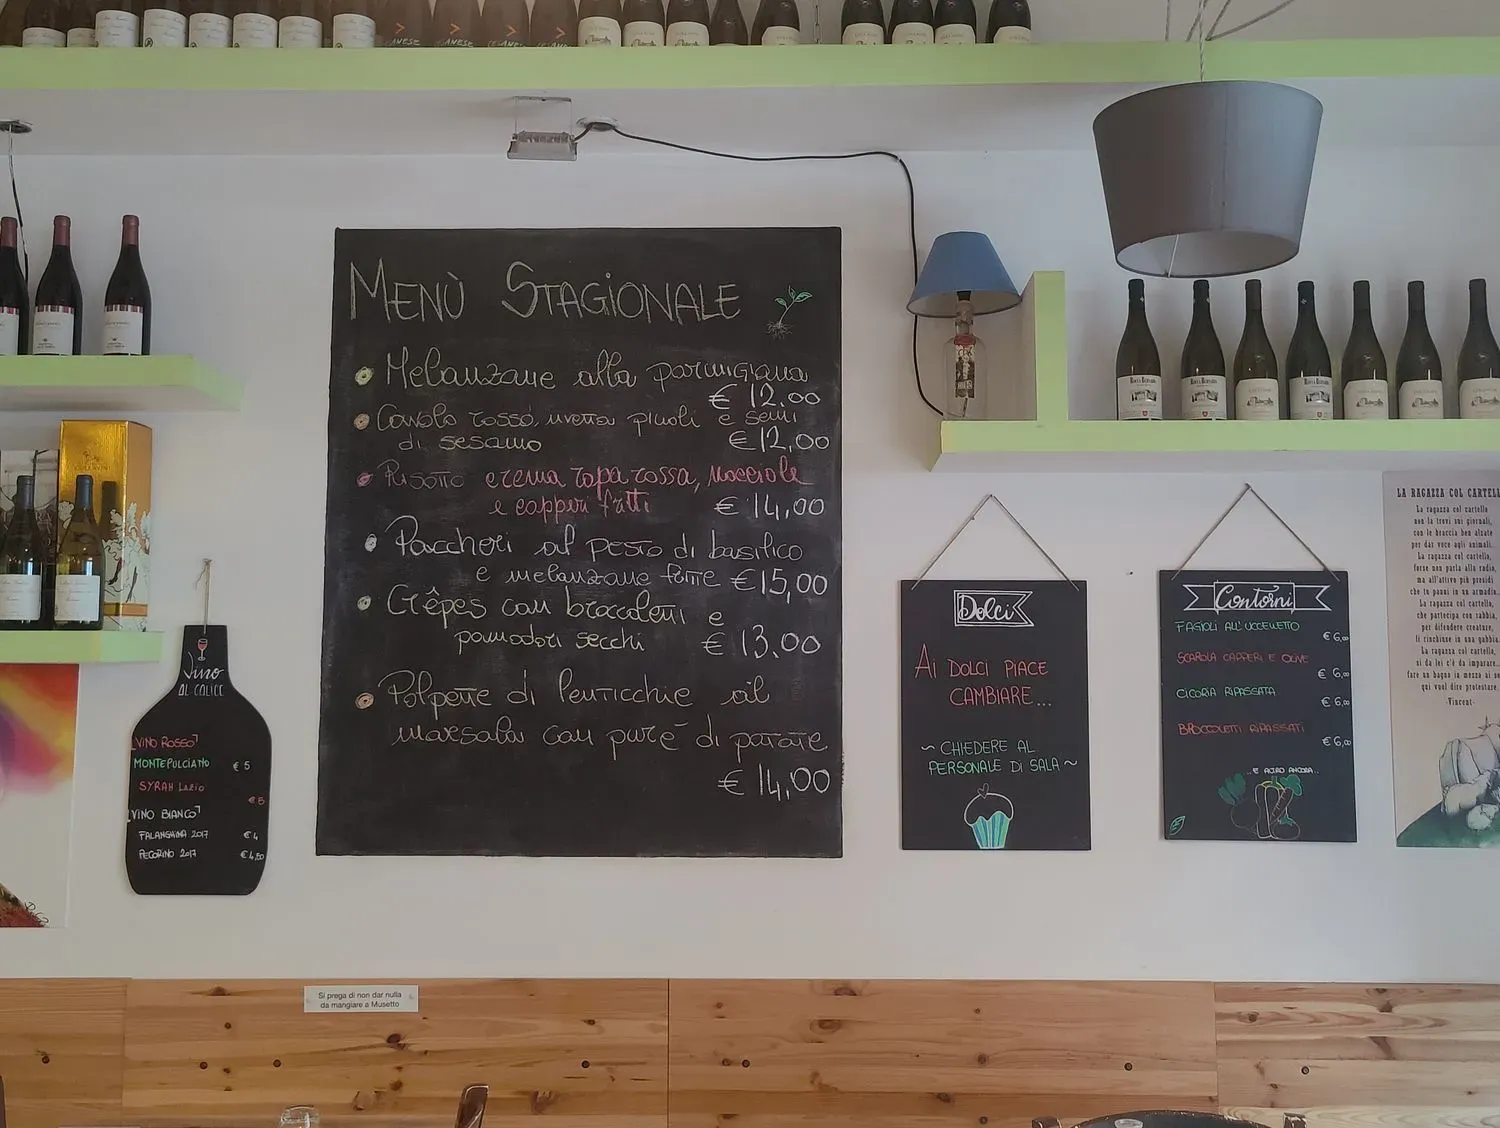 MENÙ STAGIONALE
Melanzane alla parmigiana
€ 12.00
Cavolo rosso, uvetta pinoli e semi
di sesamo € 12,00
Risotto crema rapa rossa, nocciole
e capperi fritti € 14,00
Paccheri al pesto di basilico
e melanzane fritte € 15,00
Crêpes con broccoletti e
pomodori secchi € 13.00
Polpette di lenticchie al
marsala con purè di patate
€ 14,00
Vino
AL CALICE
VINO ROSSO
MONTEPULCIANO € 5
SYRAH LAZIO
€ 5
VINO BIANCO
FALANGHINA 2017 € 4
PECORINO 2017 € 4,50
Dolci
AI DOLCI PIACE
CAMBIARE...
~ CHIEDERE AL
PERSONALE DI SALA ~
Contorni
FAGIOLI ALL'UCCELLETTO
€ 6,00
SCAROLA CAPPERI E OLIVE
€ 6,00
CICORIA RIPASSATA
€ 6,00
BROCCOLETTI RIPASSATI
€ 6,00
..E ALTRO ANCORA..
LA RAGAZZA COL CARTELL
La ragazza col cartello
non la trovi sui giornali,
con le braccia ben alzate
per dar voce agli animali.
La ragazza col cartello,
forse non parla alla radio,
ma all'attivo più presidi
che tu panni in un armadio.
La ragazza col cartello,
che partecipa con rabbia,
per difendere creature,
fi rinchiuse in una gabbia.
La ragazza col cartello,
si da lei c'è da imparare...
fare un bagno in mezzo ai se
qui vuol dire protestare.
-Vincent-
Si prega di non dar nulla
da mangiare a Musetto